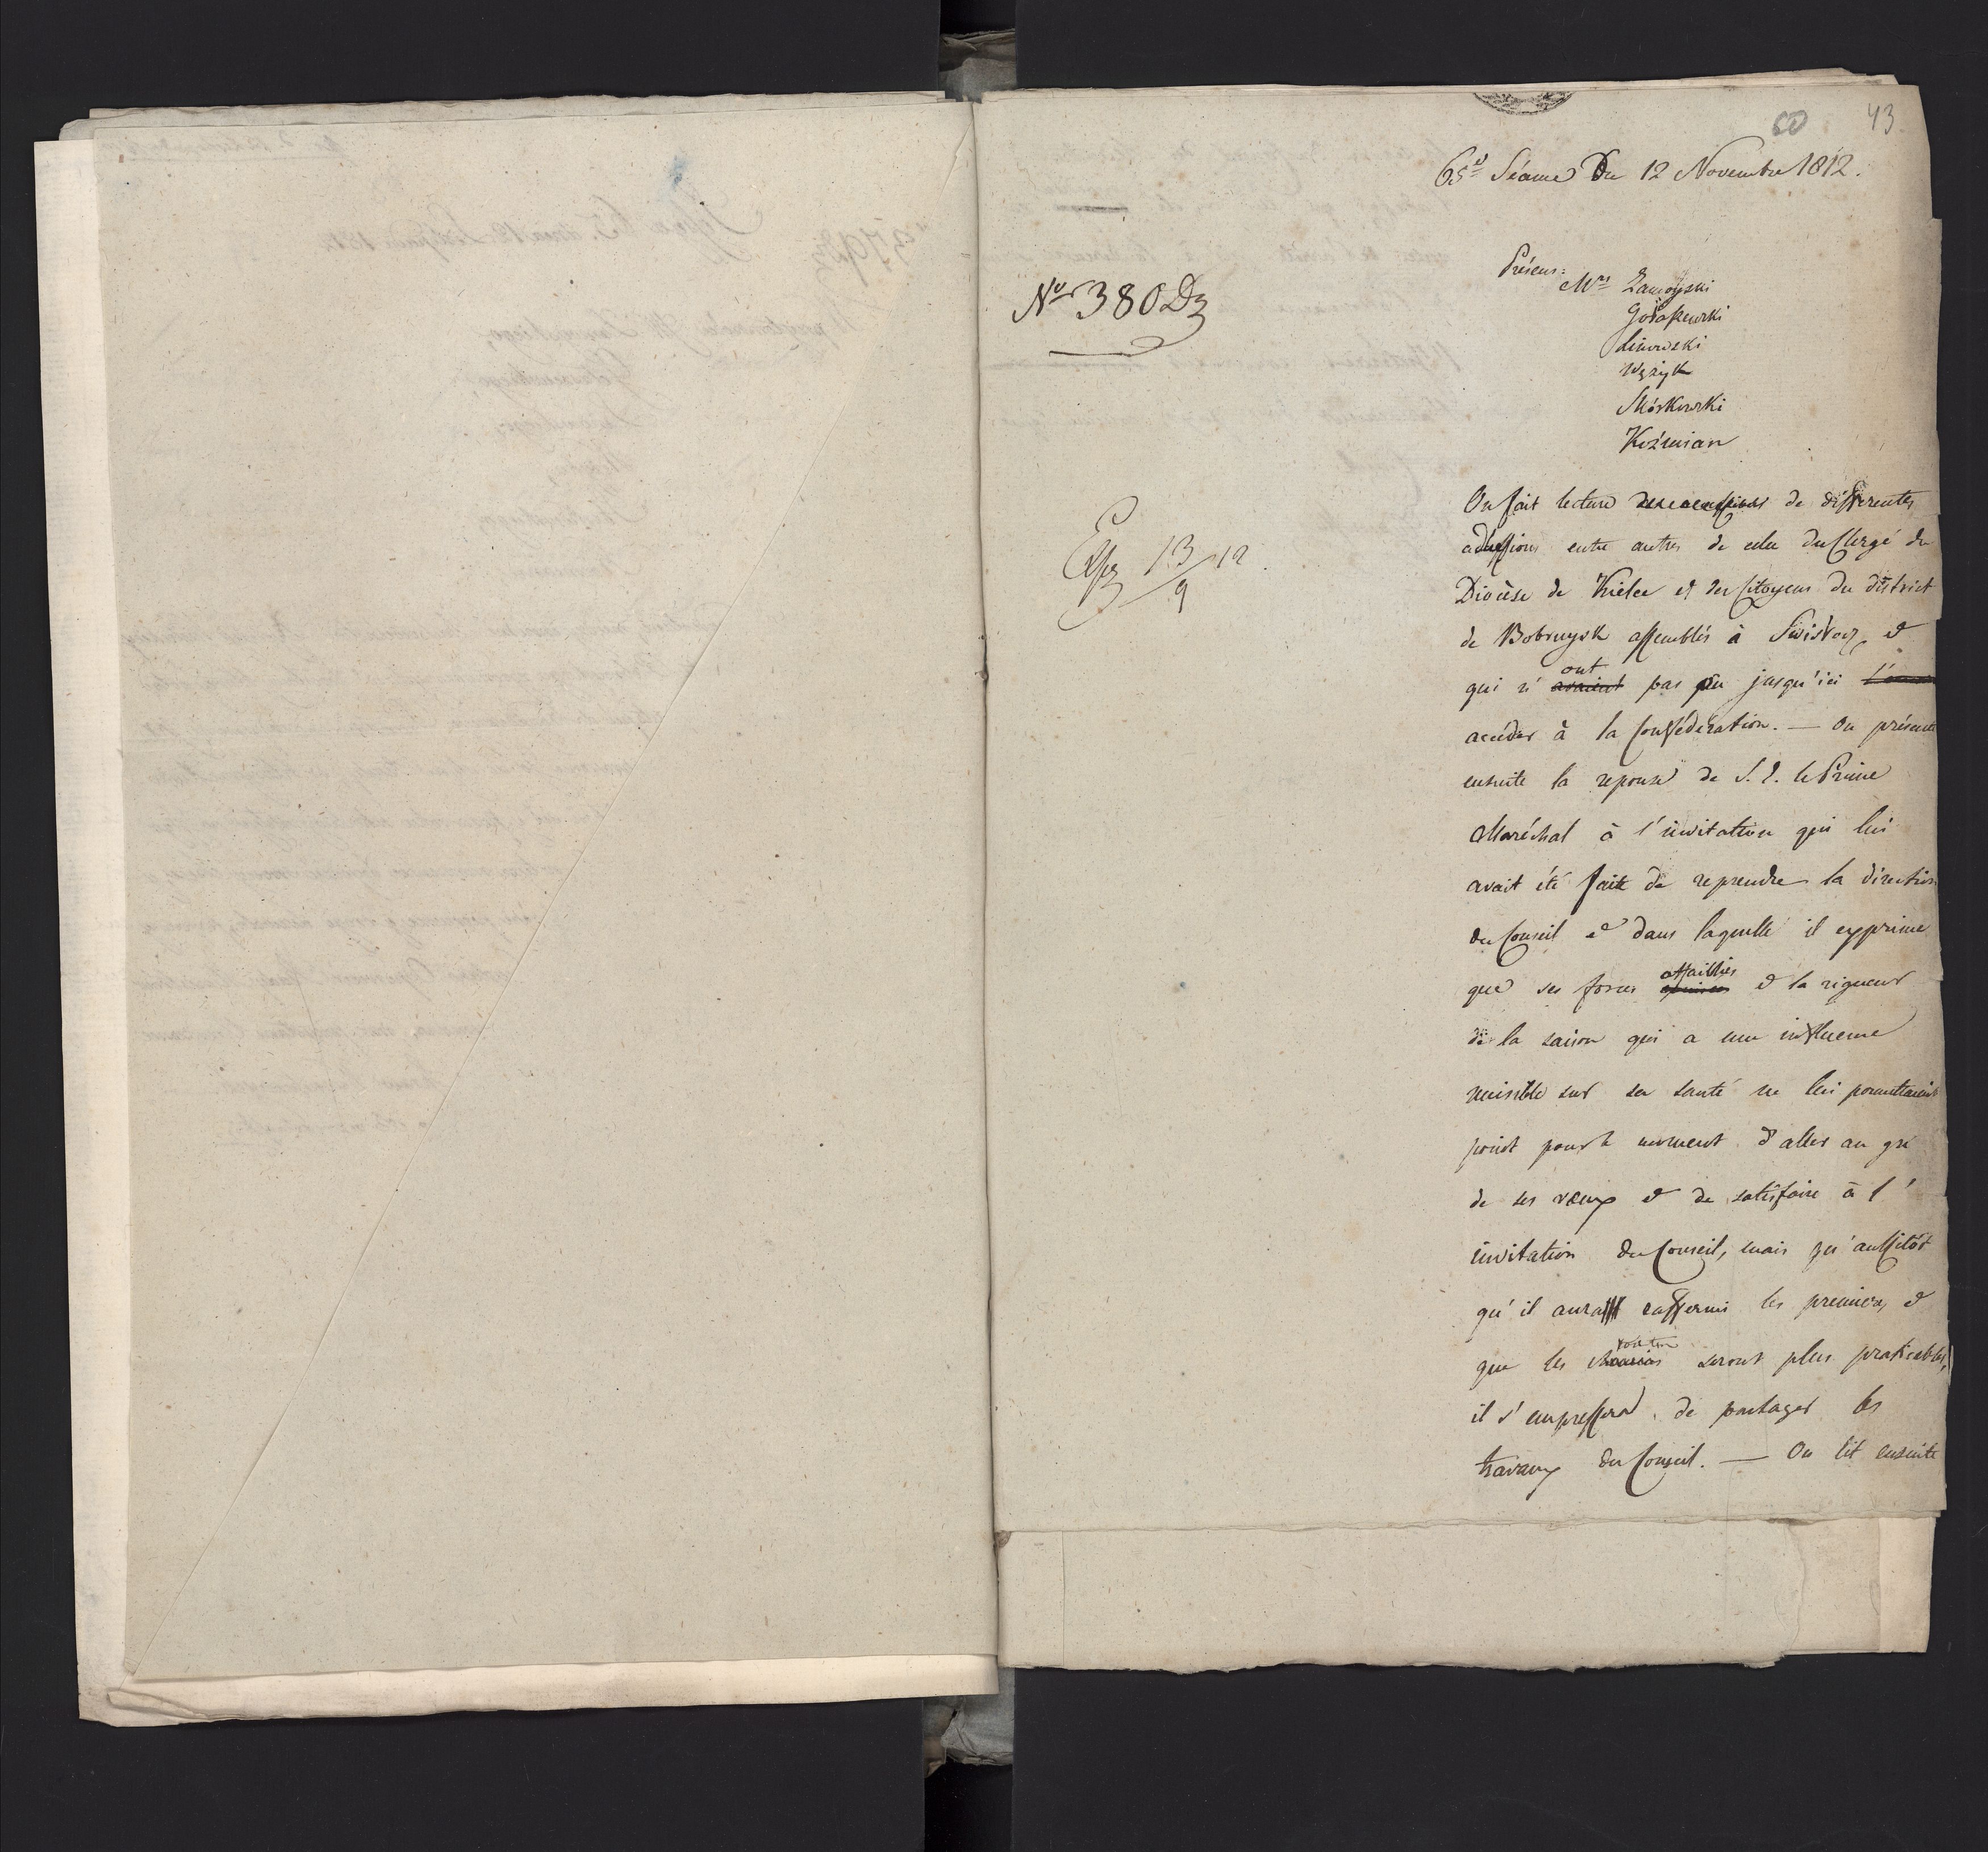 60 43
65e Séance Du 12 Novembre 1812.
No 380 Dz
Présens:
Mrs Zamoyski
Gołaszewski
Linowski
Wężyk
Skórkowski
Koźmian
Exp 13/9 12.
On fait lecture de differentes
adhessions entre autres de celu du Clergé du
Diocèse de Kielce et des Citoyens du district
de Bobruysk assemblés à Swisłocz et
qui n' avaient ont pas pu jusqu'ici
acceder à la Confédération. — On présente
ensuite la reponse de S. E. le Prince
Maréchal à l'invitation qui lui
avait été faite de reprendre la direction
du Conseil et dans laquelle il exprime
que ses forces affaiblies et la rigueur
de la saison qui a une influence
nuisible sur sa santé ne lui permettaient
point pour le moment d'aller au gré
de ses vœux et de satisfaire à l'
invitation du Conseil, mais qu'aussitôt
qu'il aura raffermi les premieres et
que les routes seront plus praticables,
il s'empressera de partager les
travaux du Conseil. — On lit ensuite